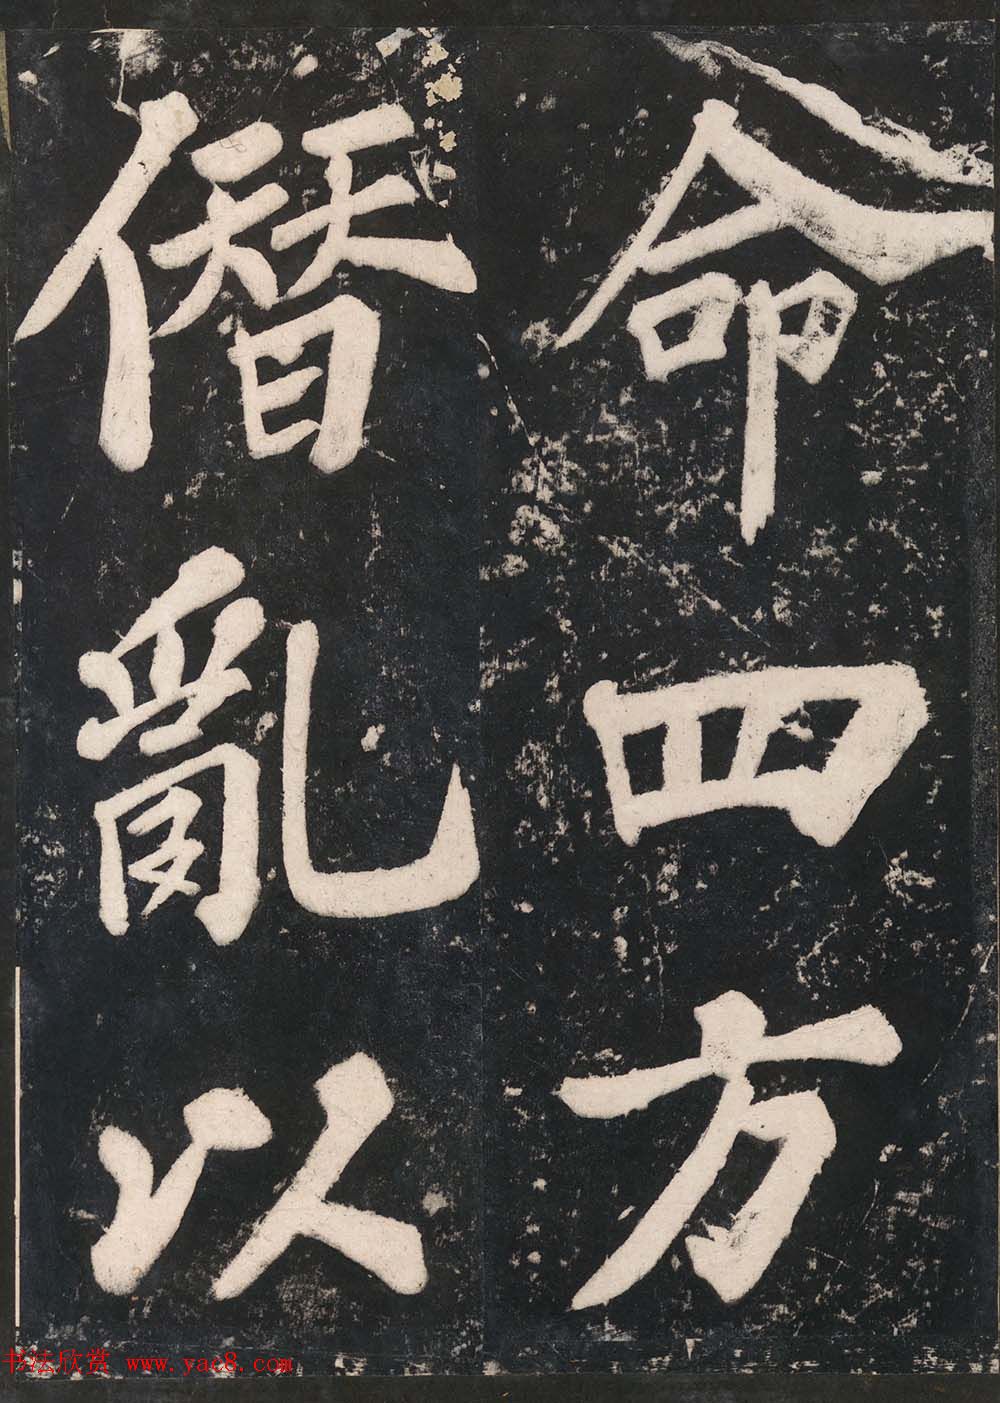 命四方
僭亂以
书法欣赏 www.yac8.com